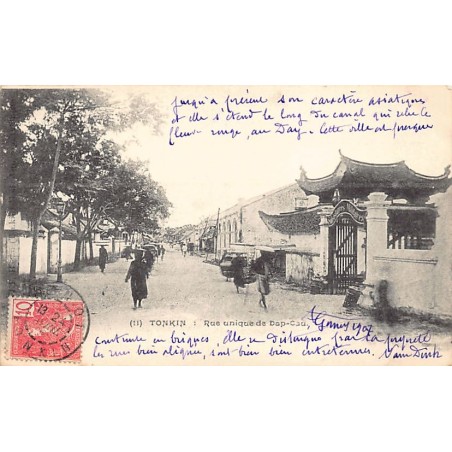 jusqu'à présent son caractère asiatique
et elle s'étend le long du canal qui relie le
fleuve rouge, au Day - Cette ville est presque
(11) TONKIN : Rue unique de Dap-Cau,
construite en briques, elle se distingue par la propreté
les rues bien alignées, sont bien entretenues. Nam Dinh
10